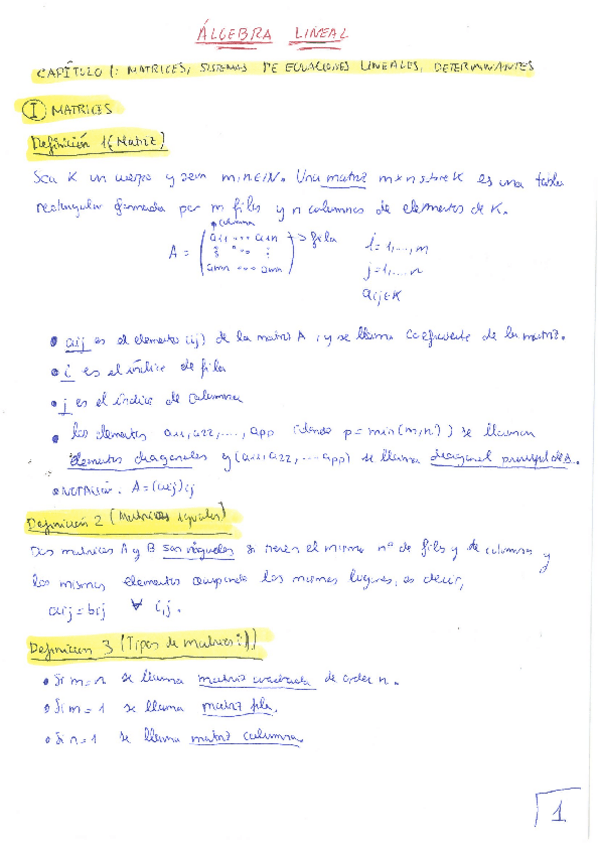 ÁLGEBRA LINEAL
CAPÍTULO 1: MATRICES, SISTEMAS DE ECUACIONES LINEALES, DETERMINANTES
I MATRICES
Definición 1 (Matriz)
Sea K un cuerpo y sean m,n∈ℕ. Una matriz m×n sobre K es una tabla
rectangular formada por m filas y n columnas de elementos de K.
columna
A = ( a11 ... a1n → fila i=1,...,m
am1 ... amn ) j=1,...,n
aij∈K
• aij es el elemento (i,j) de la matriz A, y se llama coeficiente de la matriz.
• i es el índice de fila
• j es el índice de columna
• los elementos a11, a22, ..., app (donde p=min(m,n)) se llaman
elementos diagonales y (a11, a22, ... app) se llama diagonal principal de A.
• NOTACIÓN. A=(aij)ij
Definición 2 (Matrices iguales)
Dos matrices A y B son iguales si tienen el mismo nº de filas y de columnas y
los mismos elementos ocupando los mismos lugares, es decir,
aij=bij ∀ i,j.
Definición 3 (Tipos de matrices:)
• Si m=n se llama matriz cuadrada de orden n.
• Si m=1 se llama matriz fila.
• Si n=1 se llama matriz columna.
1